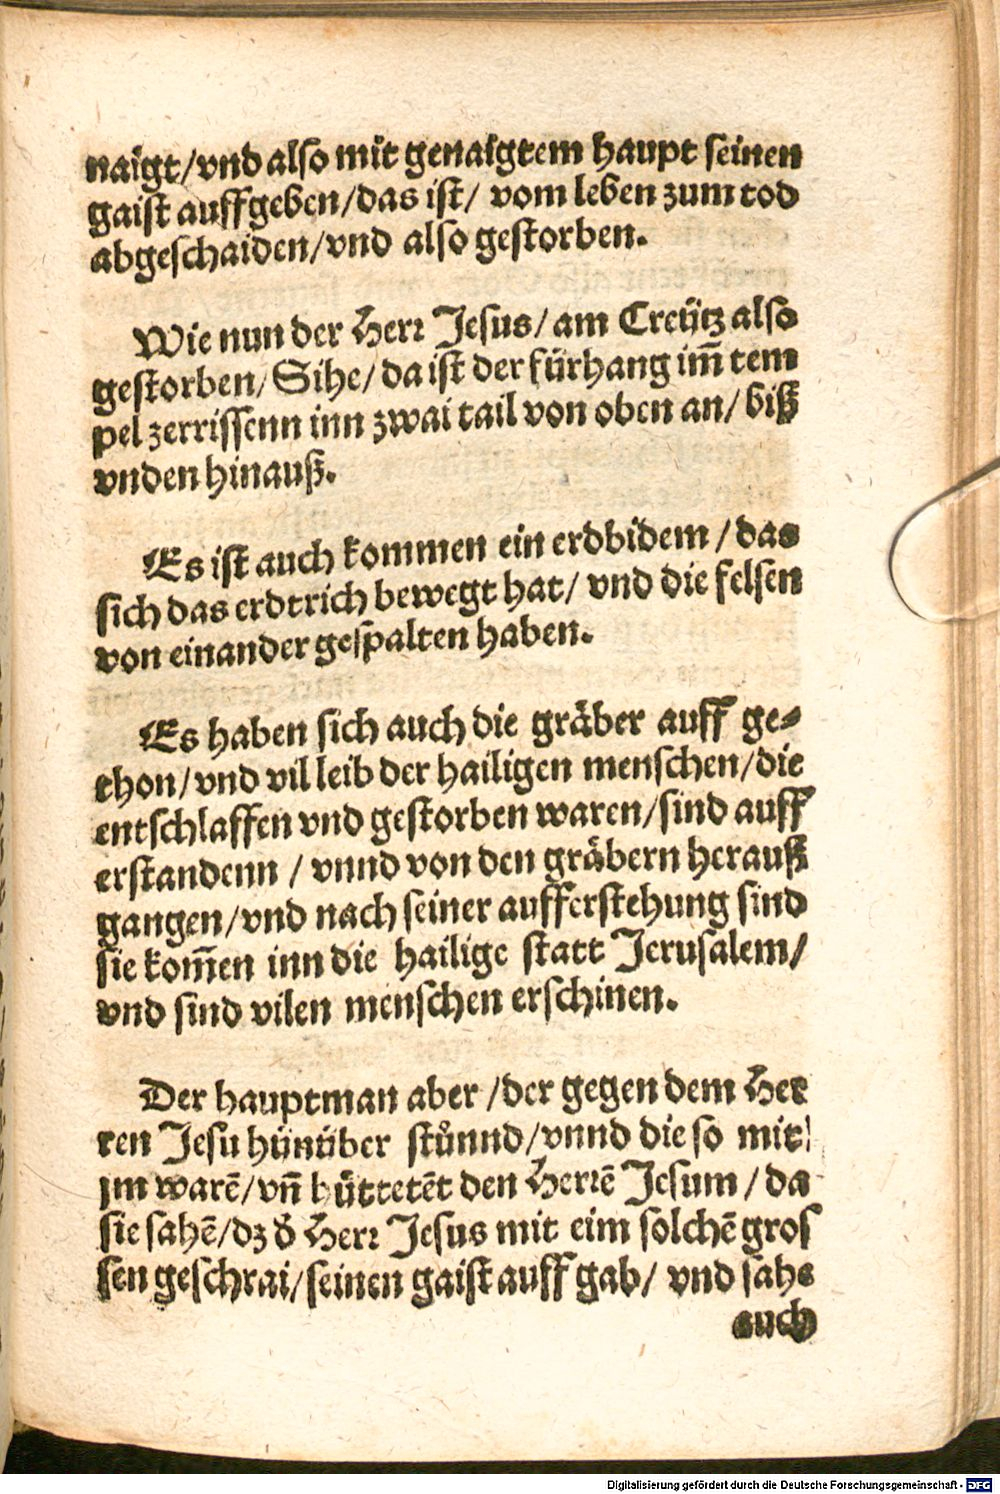 naigt/vnd also mit genaigtem haupt seinen
gaist auffgeben/das ist/ vom leben zum tod
abgeschaiden/vnd also gestorben.
Wie nun der Herr Jesus/am Creütz also
gestorben/Sihe/da ist der fürhang im̃ tem
pel zerrissenn inn zwai tail von oben an/biß
vnden hinauß.
Es ist auch kommen ein erdbidem/das
sich das erdtrich bewegt hat/ vnd die felsen
von einander gespalten haben.
Es haben sich auch die gräber auff ge⸗
thon/vnd vil leib der hailigen menschen/die
entschlaffen vnd gestorben waren/sind auff
erstandenn / vnnd von den gräbern herauß
gangen/vnd nach seiner aufferstehung sind
sie kom̃en inn die hailige statt Jerusalem/
vnd sind vilen menschen erschinen.
Der hauptman aber /der gegen dem Her
ren Jesu hünüber stůnnd/vnnd die so mit
jm warē/vñ hüttetēt den Herrē Jesum/da
sie sahē/dz d̕ Herr Jesus mit eim solchē gros
sen geschrai/seinen gaist auff gab/ vnd sahe
auch
Digitalisierung gefördert durch die Deutsche Forschungsgemeinschaft - DFG